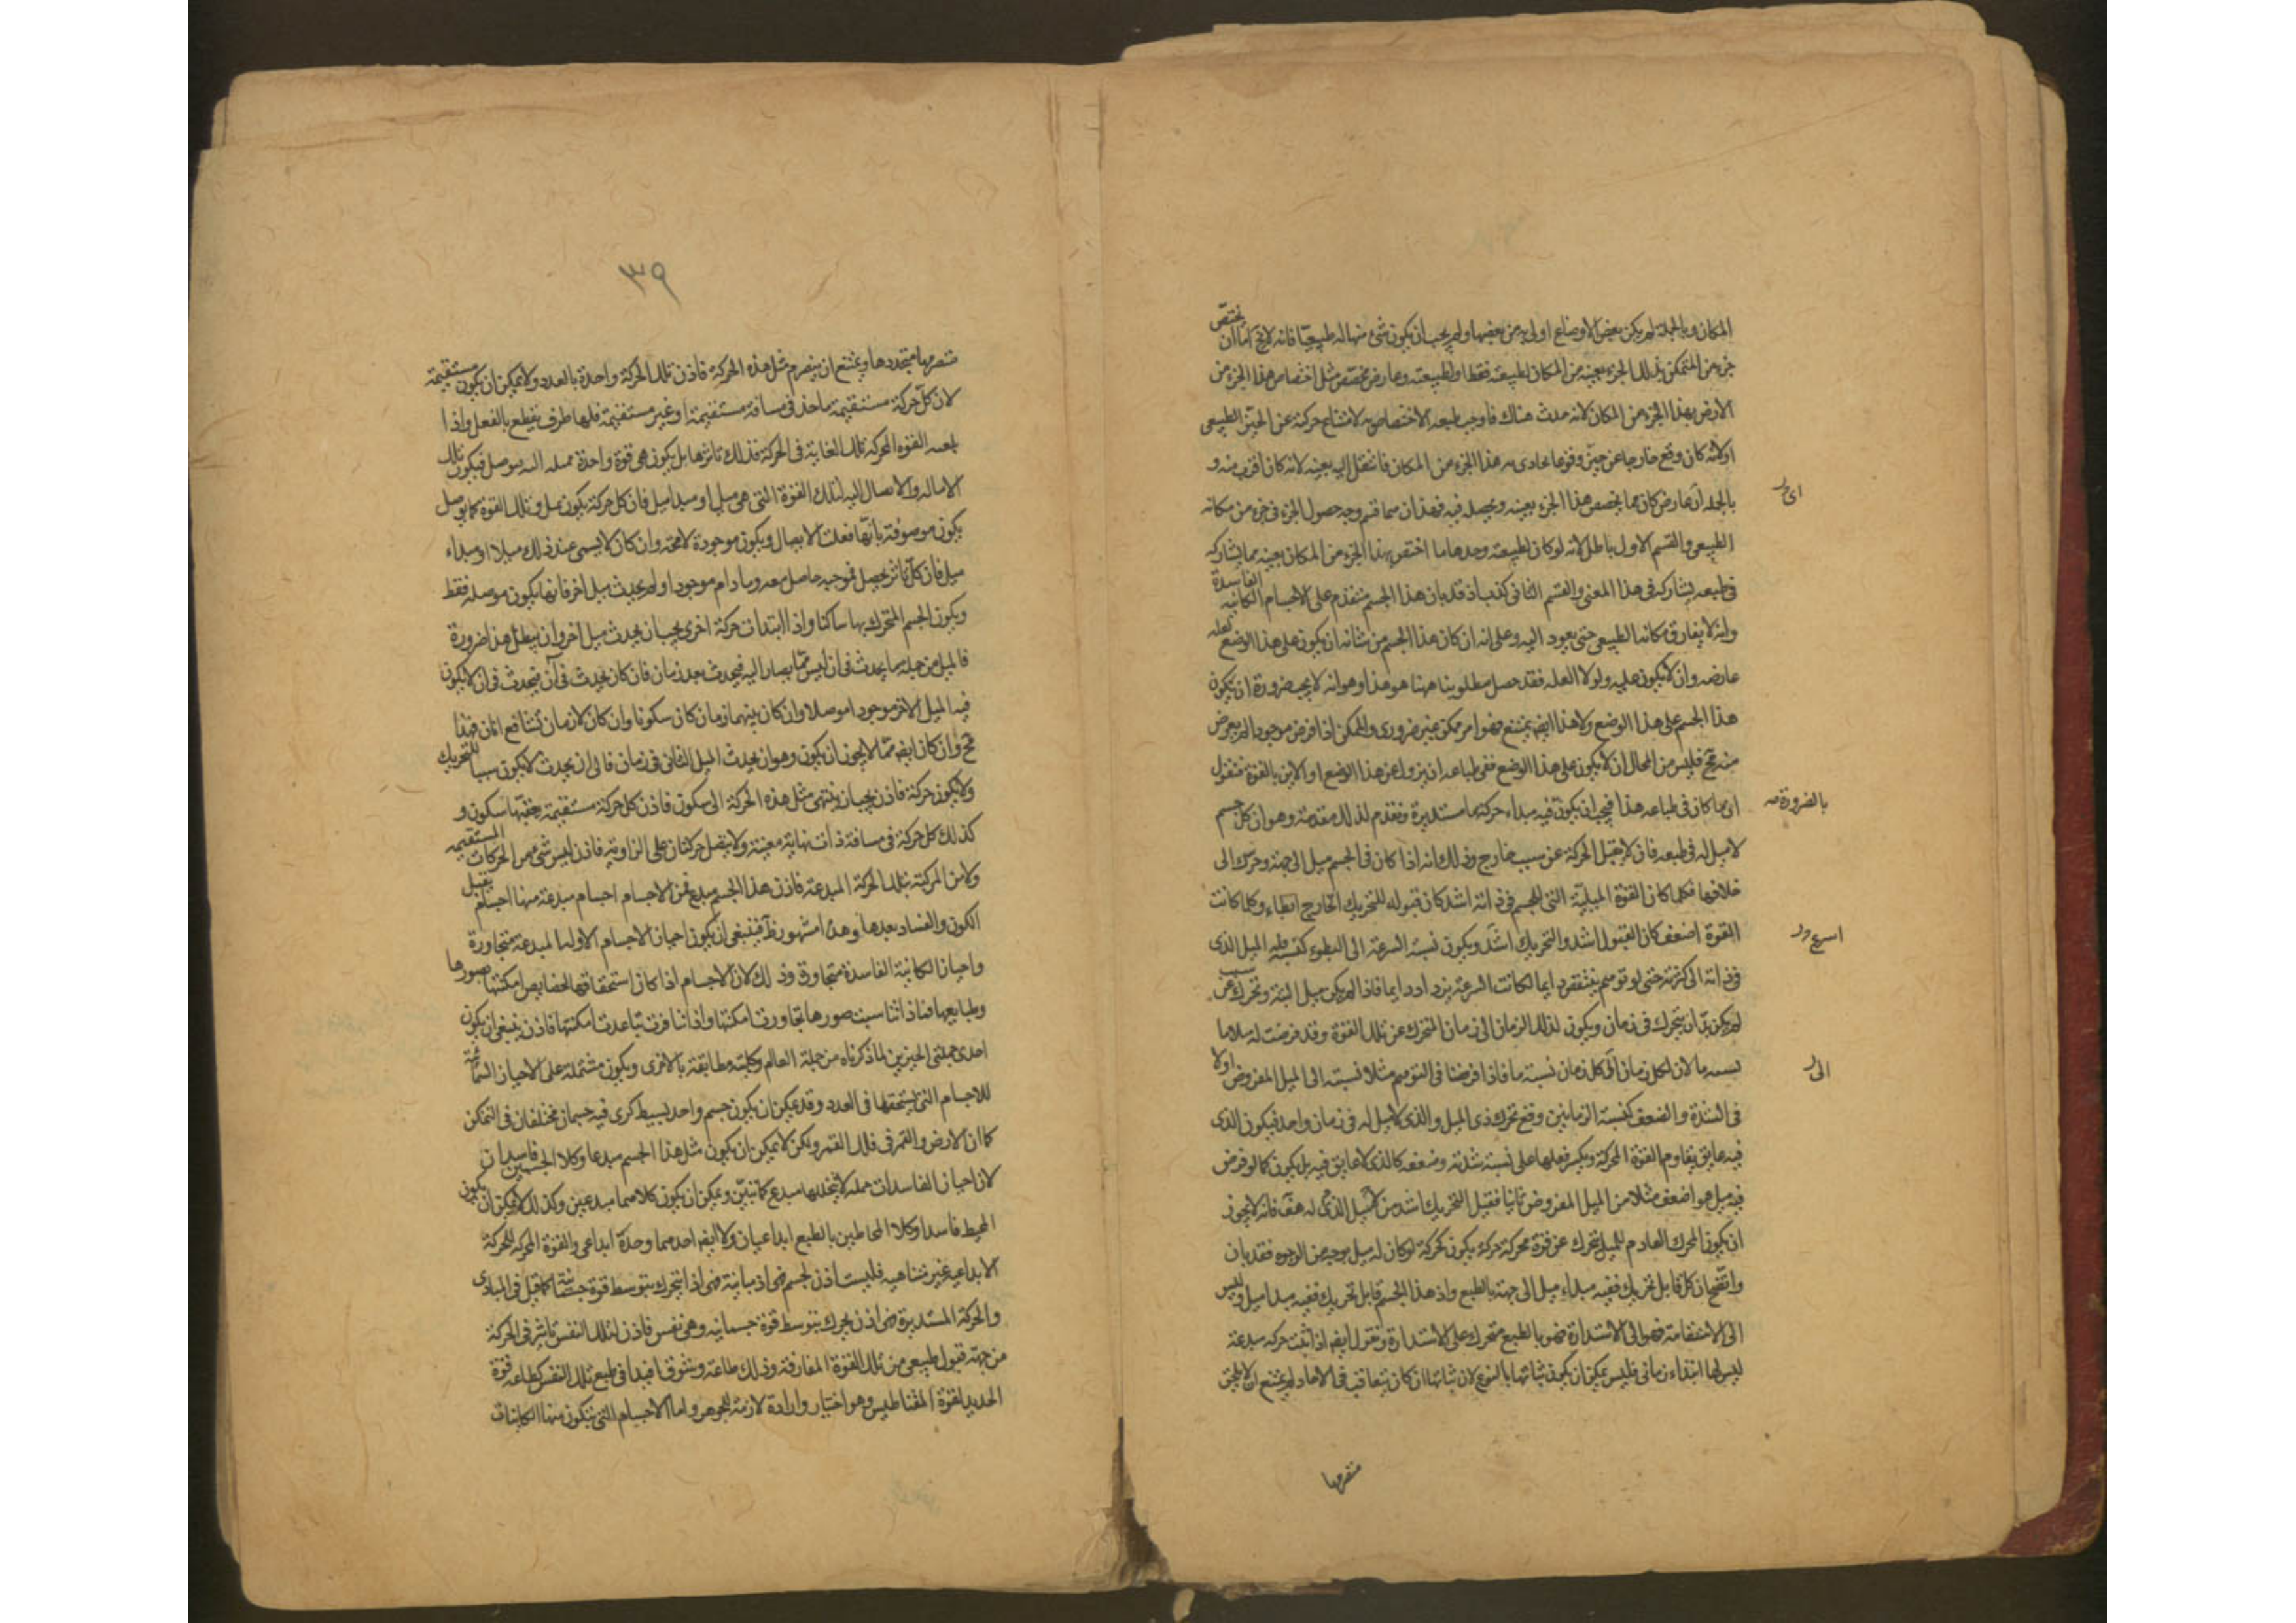 المكان وبالجملة لم يكن بعض الاوضاع اولى به من بعضها ولم يجب ان يكون شئ منها له طبيعيا فانه لا يخ اما ان يختص
جزء من المتمكن بذلك الجزء بعينه من المكان لطبيعته فقط او لطبيعته وعارض مخصص مثل اختصاص هذا الجزء من
الارض بهذا الجزء من المكان لانه حدث هناك فاوجب طبعه الاختصاص به لامتناع حركته عن الحيز الطبيعى
او لانه كان وقع خارجا عن حيزه وقوعا يحاذى به هذا الجزء من المكان فانتقل اليه بعينه لانه كان اقرب منه و
بالجملة ان عارض كان مما يخصص هذا الجزء بعينه ويحصله فيه فهذان هما قسما وجه حصول الجزء فى جزء من مكانه
الطبيعى والقسم الاول باطل لانه لو كان لطبيعته وحدها ما اختص بهذا الجزء من المكان بعينه مما يشاركه
فى طبعه يشاركه فى هذا المعنى والقسم الثانى كذب اذ قد بان هذا الجسم متقدم على الاجسام الكاينة الفاسدة
وانه لا يفارق مكانه الطبيعى حتى يعود اليه وعلى انه ان كان هذا الجسم من شانه ان يكون على هذا الوضع لعلة
عارضه وان لا يكون عليه ولولا العله فقد حصل مطلوبنا ههنا هو هذا وهو انه لا يجب ضرورة ان يكون
هذا الجسم على هذا الوضع ولا هذا ايضا يمتنع فهو امر ممكن غير ضرورى والممكن اذا فرض موجودا لم يعرض
منه مح فليس من المحال ان لا يكون على هذا الوضع ففى طباعه ان يزول عن هذا الوضع او الاين بالقوة فنقول
ان ما كان فى طباعه هذا فيجب ان يكون فيه مبداء حركة ما مستديرة ونقدم لذلك مقدمة وهو ان كل جسم
لا ميل له فى طبعه فانه لا يقبل الحركة عن سبب خارج وذلك انه اذا كان فى الجسم ميل الى جهة وحرك الى
خلافها فكلما كان القوة الميلية التى للجسم فى ذاته اشد كان قبوله للتحريك الخارج ابطاء وكلما كانت
القوة اضعف كان القبول اشد والتحريك اشد ويكون نسبة السرعة الى البطوء كنسبة قلة الميل الذى
فى ذاته الى كثرته حتى لو توهم ينتقص دايما لكانت السرعة يزداد دايما فاذا لم يكن ميل البتة وتحرك عن سبب
لم يكن بد ان يتحرك فى زمان ويكون لذلك الزمان الى زمان المتحرك عن تلك القوة وقد فرضت له ميلا ما
نسبه ما لان لكل زمان الى كل زمان نسبة ما فاذا فرضنا فى التوهم مثلا نسبته الى الميل المفروض اولا
فى الشدة والضعف كنسبة الزمانين وقع تحرك ذى الميل والذى لا ميل له فى زمان واحد فيكون الذى
فيه عايق يقاوم القوة المحركة ويكسر فعلها على نسبة شدته وضعفه كالذى لا عايق فيه بل يكون كما لو فرض
فيه ميل هو اضعف مثلا من الميل المفروض ثانيا فقبل التحريك اشد من الميل الذى له هف فانه لا يجوز
ان يكون المحرك العادم للميل يتحرك عن قوة محركة حركة يكون كحركة لو كان له ميل بوجه من الوجوه فقد بان
واتضح ان كل قابل تحريك ففيه مبداء ميل الى جهة بالطبع واذ هذا الجسم قابل تحريك ففيه مبدا ميل وليس
الى الاستقامة فهو الى الاستدارة فهو بالطبع متحرك على الاستدارة ونقول ايضا اذا ثبت حركة مبدعة
ليس لها ابتداء زمانى فليس يمكن ان يكون ثباتها بالنوع لان ثباتها ان كان بتعاقب فى الاحاد لم يمتنع ان لا يلحق
اى ر
بالضرورة صه
اسرع ور
الى ر
متصرمها
٣٩
متصرمها متجددها ويمتنع ان يتصرم مثل هذه الحركة فاذن تلك الحركة واحدة بالعدد ولا يمكن ان يكون مستقيمة
لان كل حركة مستقيمة ماخذ فى مسافة مستقيمة او غير مستقيمة فلها طرف يقطع بالفعل واذا
بلغت القوة المحركة تلك الغاية فى الحركة فذلك تاثرها بل يكون هى قوة واحدة ممیله اليه موصل فيكون تلك
الاماله والايصال اليه لتلك القوة التى هى ميل او مبدا ميل فان كل حركة يكون بميل وتلك القوة كما يوصل
يكون موصوفة بانها فعلت الايصال ويكون موجودة لا محة وان كان لا يسمى عند ذلك ميلا او مبداء
ميل فان كل تاثر يحصل فموجبه حاصل معه وما دام موجودا ولم يحدث ميل اخر فانها يكون موصله فقط
ويكون الجسم المتحرك بها ساكنا واذا ابتدات حركة اخرى يجب ان يحدث ميل اخر وان يبطل هذا ضرورة
فالميل من جملة ما يحدث فى ان ليس مما يصار اليه فيحدث بعد زمان فان كان يحدث فى آن فيحدث فى ان لا يكون
فيه الميل الاخر موجودا موصلا وان كان بينهما زمان كان سكونا وان كان لا زمان تشافع انان فهذا
مح وان كان ايضا مما لا يجوز ان يكون وهو ان يحدث الميل الثانى فى زمان فالى ان يحدث لا يكون سببا للتحريك
ولا يكون حركة فاذن يجب ان ينتهى مثل هذه الحركة الى سكون فاذن كل حركة مستقيمة يعقبها سكون و
كذلك كل حركة فى مسافة ذات نهاية معينة ولا يتصل حركتان على الزاوية فاذن ليس شئ من الحركات المستقيمه
ولا من المركبة بتلك الحركة المبدعة فاذن هذا الجسم مبدع فمن الاجسام اجسام مبدعة منها اجسام يقبل
الكون والفساد بعدها وهذا مشهور ظ فينبغى ان يكون احياز الاجسام الاولى المبدعة متجاورة
واحياز الكاينة الفاسدة متجاورة وذلك لان الاجسام اذا كان استحقاقها لخصايص امكنتها بصورها
وطبايعها فاذا تناسبت صورها تجاورت امكنتها واذا تنافرت تباعدت امكنتها فاذن ينبغى ان يكون
احدى جملتى الحيزين لما ذكرناه من جملة العالم وكليته مطابقة بالاخرى ويكون مشتملة على الاحياز
للاجسام التى يستحقها فى العدد وقد يمكن ان يكون جسم واحد بسيط كرى فيه جسمان مختلفان فى التمكن
كما ان الارض والقمر فى فلك القمر ولكن لا يمكن ان يكون مثل هذا الجسم مبدعا وكلا الجسمين فاسدان
لان احياز الفاسدات جملة لا يتخللها مبدع كما تبين ويمكن ان يكون كلاهما مبدعين وكذلك لا يمكن ان يكون
المحيط فاسدا وكلا المحاطين بالطبع ابداعيان ولا ايضا احدهما وحده ابداعى والقوة المحركة للحركة
الابداعيه غير متناهيه فليست اذن لجسم فهى اذ مباينة فهى اذا يتحرك بتوسط قوة جسمانية كما قيل فى المبادى
والحركة المستديرة فهى اذن يحرك بتوسط قوة جسمانيه وهى نفس فاذن لتلك النفس تاثير فى الحركة
من جهة قبول طبيعى من تلك القوة المفارقة وذلك طاعة وتشوق ما فبدا فى طبع تلك النفس كطاعة قوة
الحديد لقوة المقناطيس وهو اختيار وارادة لازمة للجوهر واما الاجسام التى يتكون منها الكاينات